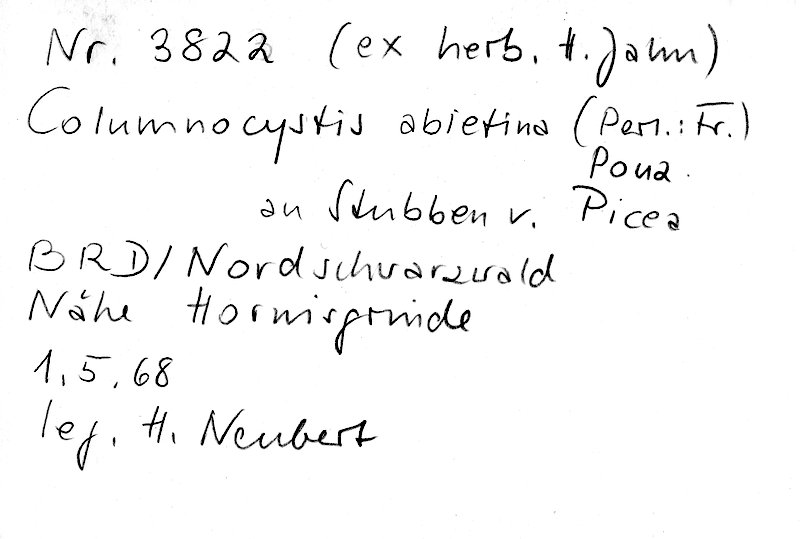 Nr. 3822 (ex herb. H. Jahn)
Columnocystis abietina (Pers.: Fr.)
Pouz.
an Stubben v. Picea
BRD/Nordschwarzwald
Nähe Hornisgrinde
1.5.68
leg. H. Neubert